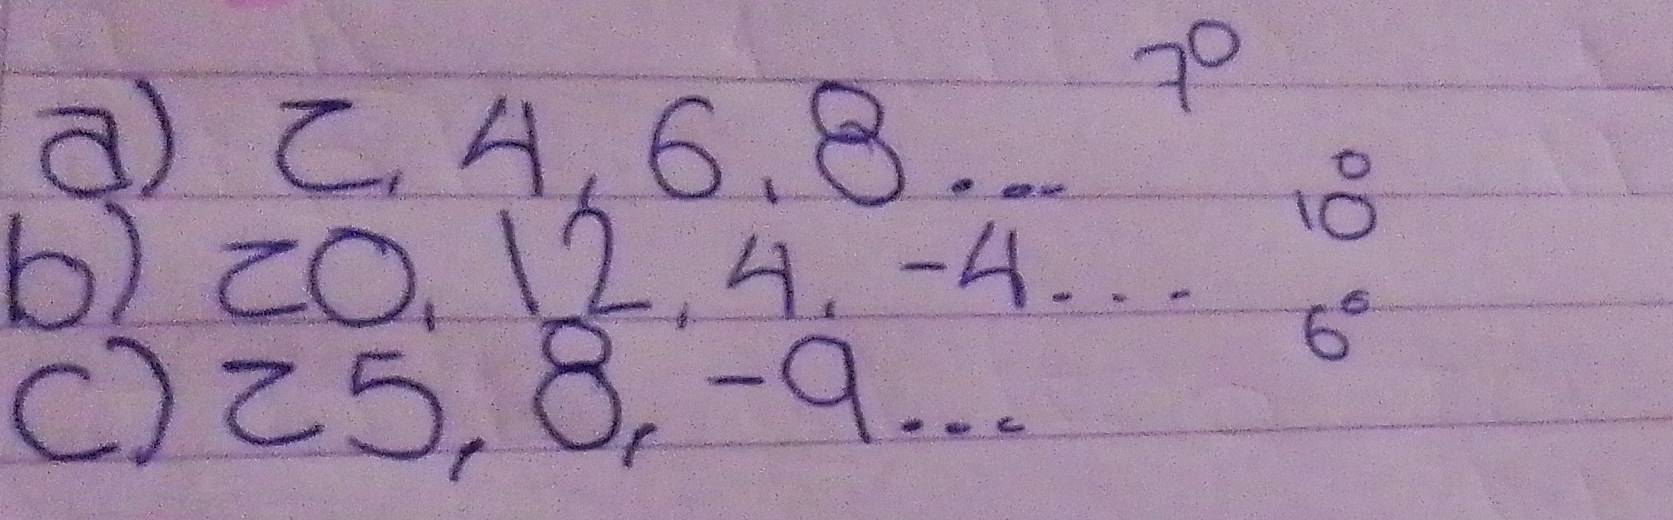 a) 2, 4, 6, 8.... 7⁰
b) 20, 12, 4, -4.... 10⁰
c) 25, 8, -9.... 6⁰